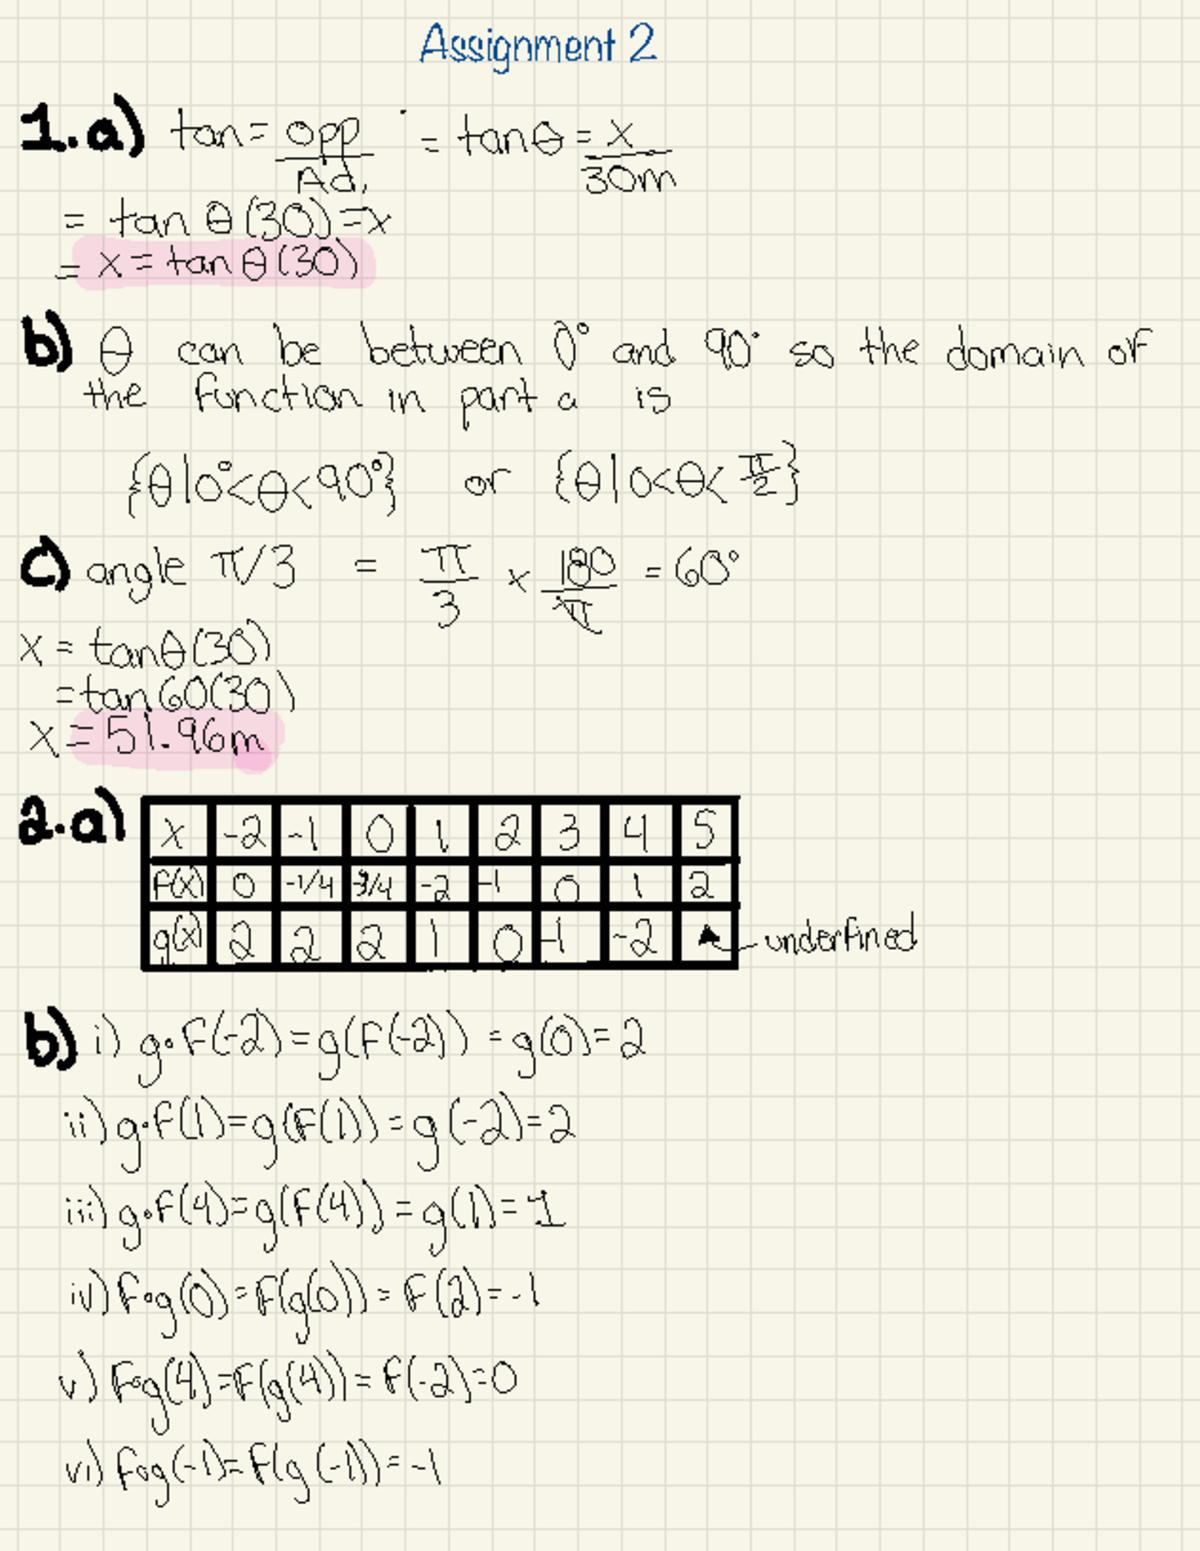 Assignment 2
1.a) tan = opp/Ad. = tanθ = x/30m
= tan θ(30) = x
= x = tan θ(30)
b) θ can be between 0° and 90° so the domain of
the function in part a is
{θ|0°<θ<90°} or {θ|0<θ<π/2}
c) angle π/3 = π/3 × 180/π = 60°
x = tanθ(30)
= tan 60(30)
x = 51.96m
2.a)
x -2 -1 0 1 2 3 4 5
f(x) 0 -1/4 -3/4 -2 -1 0 1 2
g(x) 2 2 2 1 0 -1 -2 underfined
b) i) g∘f(-2) = g(f(-2)) = g(0) = 2
ii) g∘f(1) = g(f(1)) = g(-2) = 2
iii) g∘f(4) = g(f(4)) = g(1) = 1
iv) f∘g(0) = f(g(0)) = f(2) = -1
v) f∘g(4) = f(g(4)) = f(-2) = 0
vi) f∘g(-1) = f(g(-1)) = -1